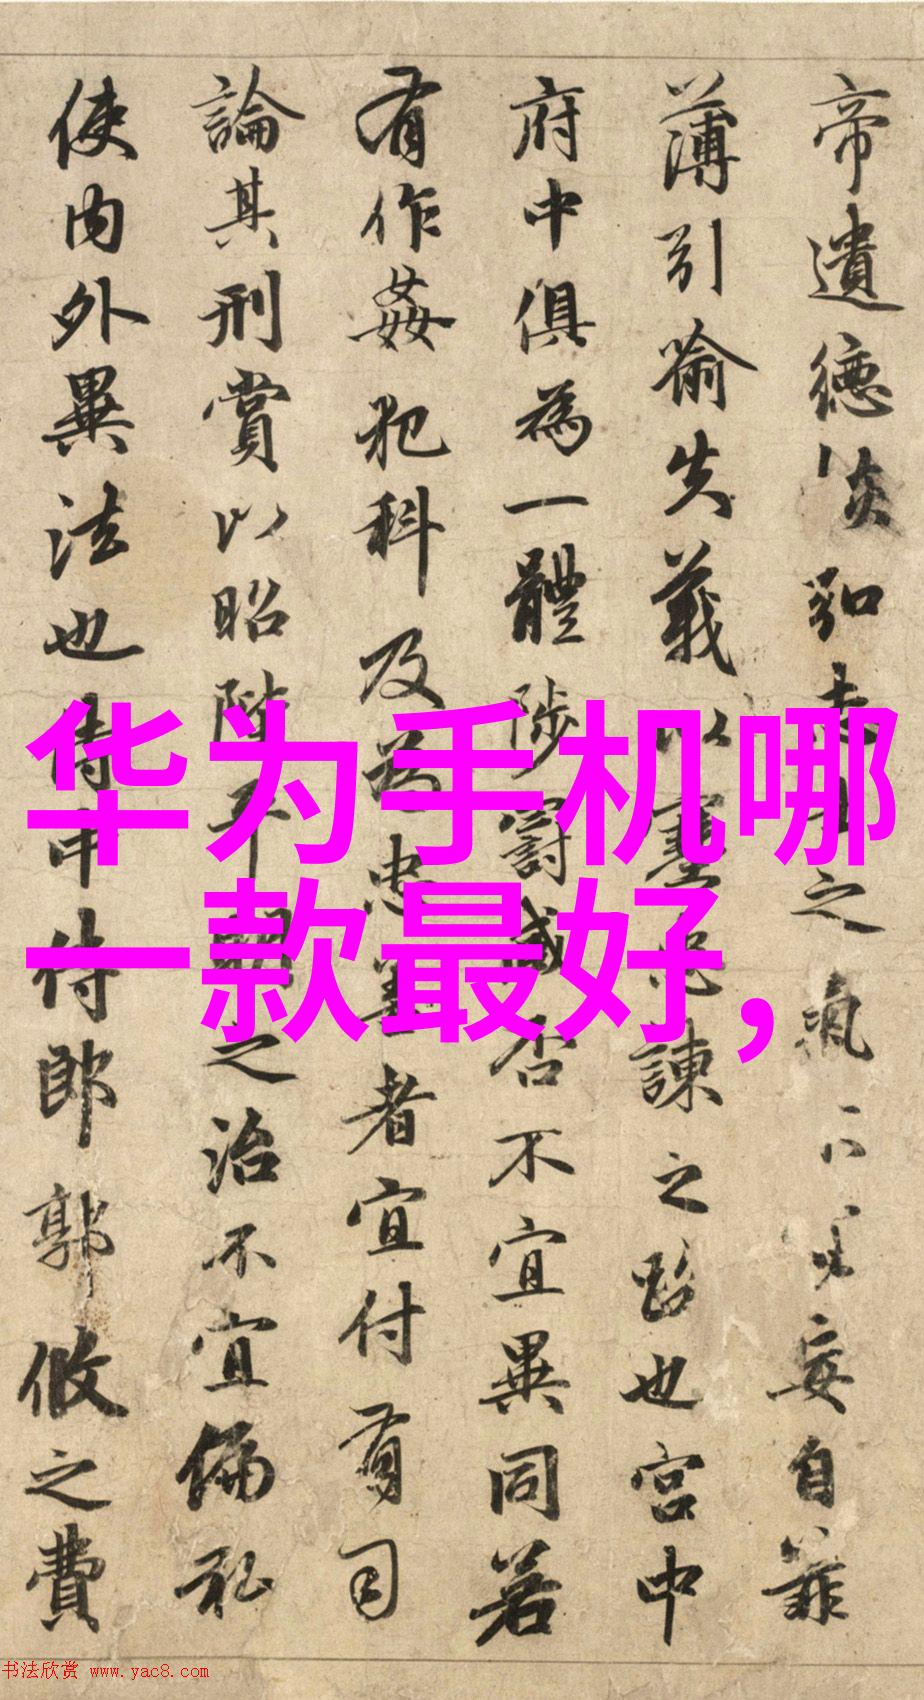 帝遺德恢弘志士之氣不宜妄自菲
薄引喻失義以塞忠諫之路也宮中
府中俱為一體陟罰臧否不宜異同若
有作姦犯科及為忠善者宜付有司
論其刑賞以昭陛平明之治不宜偏私
使內外異法也侍中侍郎郭攸之費
华为手机哪
一款最好,
书法欣赏 www.yac8.com